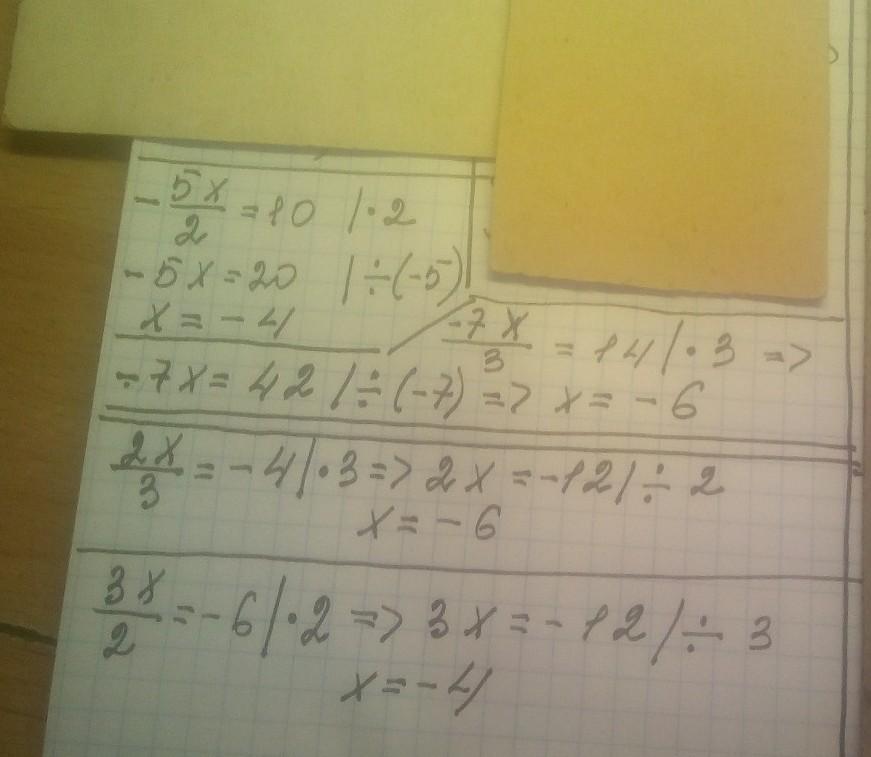 -5x/2 = 10 |·2
-5x = 20 |÷(-5)
x = -4
-7x/3 = 14 |·3 =>
-7x = 42 |÷(-7) => x = -6
2x/3 = -4 |·3 => 2x = -12 |÷ 2
x = -6
3x/2 = -6 |·2 => 3x = -12 |÷ 3
x = -4